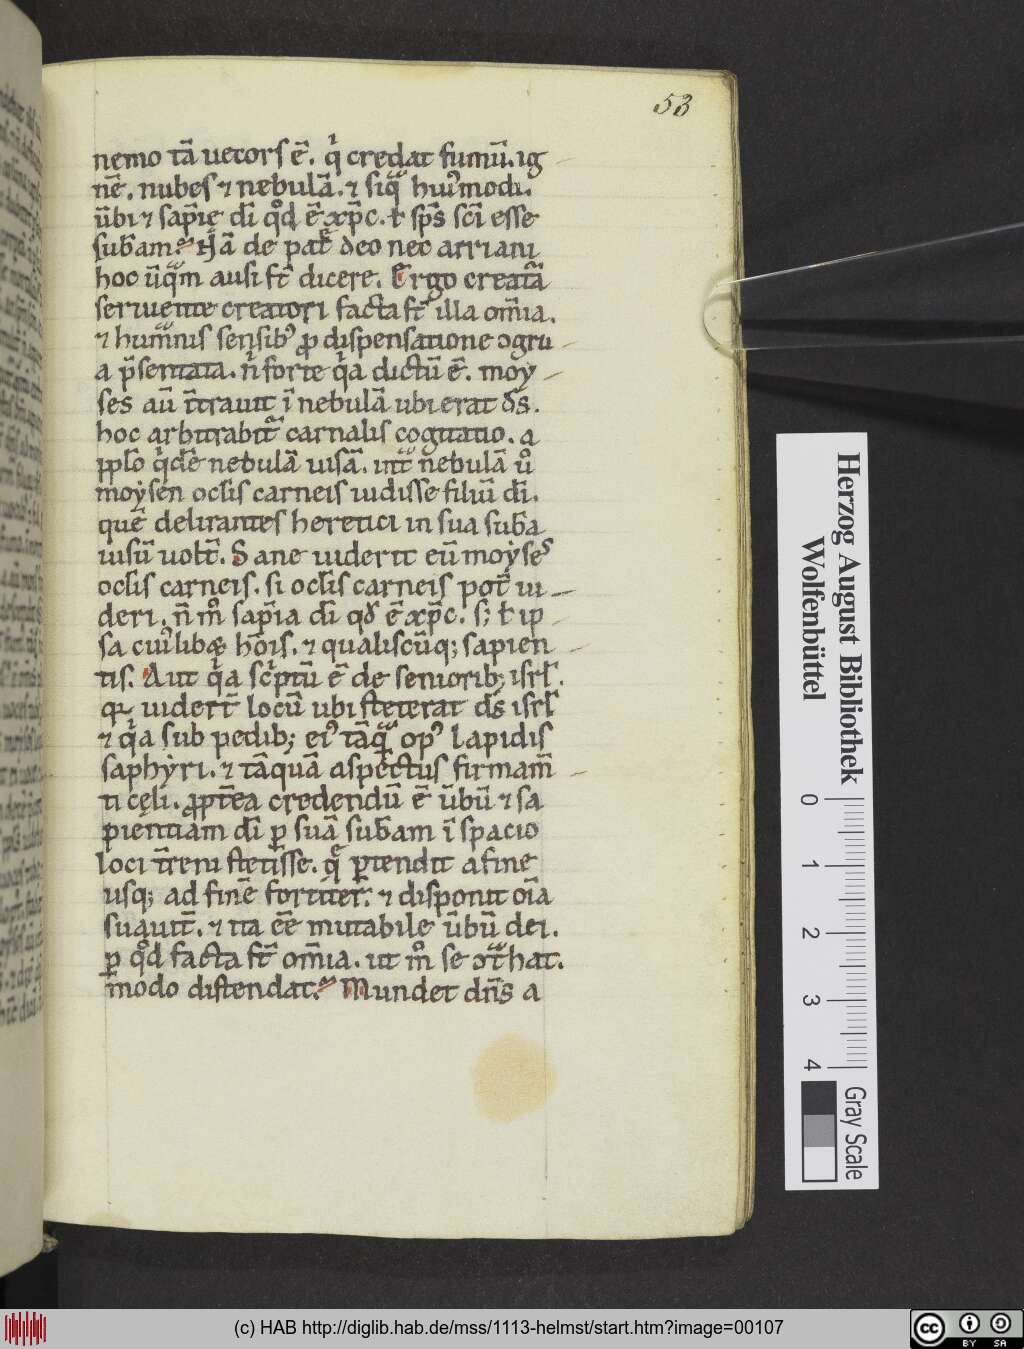 53
nemo tā uecors ē. qͥ credat fumū. ig
nē. nubes ⁊ nebulā. ⁊ siqͣ huiꝰmodi.
ūbi ⁊ sap̄ię dī qͦd ē xp̄c. ł sp̄s sc̄i esse
sub̄am. Nā de patͤ deo nec arriani
hoc ūqͣm ausi st̄ dicere. Ergo creatā
seruiente creatori facta st̄ illa om̄ia.
⁊ humͣnis sensibꝰ ꝓ dispensatione ↄgru
a p̄sentata. n̄ forte qͥa dictū ē. moy
ses aū īntrauit ī nebulā ubi erat ds̄.
hoc arbitrabitᷣ carnalis cogitatio. a
pplo qͥdē nebulā uisā. intͣ nebulā uͦ
moẏsen oclis carneis uidisse filiū dī.
quē delirantes heretici in sua sub̄a
uisū uolt̄. Sane uiderit eū moẏses
oclis carneis. si oclis carneis pot̄ ui
deri. n̄ mͦ sap̄ia dī qd̄ ē xp̄c. s; ł ip
sa cuiꝰlibꝫ hōis. ⁊ qualiscūq; sapien
tis. Aut qͥa scͥptū ē de seniorib; isrl̄.
qꝛ uidert̄ locū ubi steterat ds̄ isrl̄
⁊ qͥa sub pedib; eiꝰ tāqͣ opꝰ lapidis
saphẏri. ⁊ tāquā aspectus firmam̄
ti cęli. ꝓpt̄ea credendū ē ūbū ⁊ sa
pientiam dī ꝑ suā sub̄am ī spacio
loci t̄reni stetisse. qͤ ꝑtendit a fine
usq; ad finē fortiter. ⁊ disponit oīa
suauit̄. ⁊ ita eē mutabile ūbū dei.
ꝑ qͦd facta st̄ om̄ia. ut mͦ se ↄtͣhat.
modo distendat. Mundet dn̄s a
Herzog August Bibliothek
Wolfenbüttel
0 1 2 3 4
Gray Scale
(c) HAB http://diglib.hab.de/mss/1113-helmst/start.htm?image=00107
cc BY SA